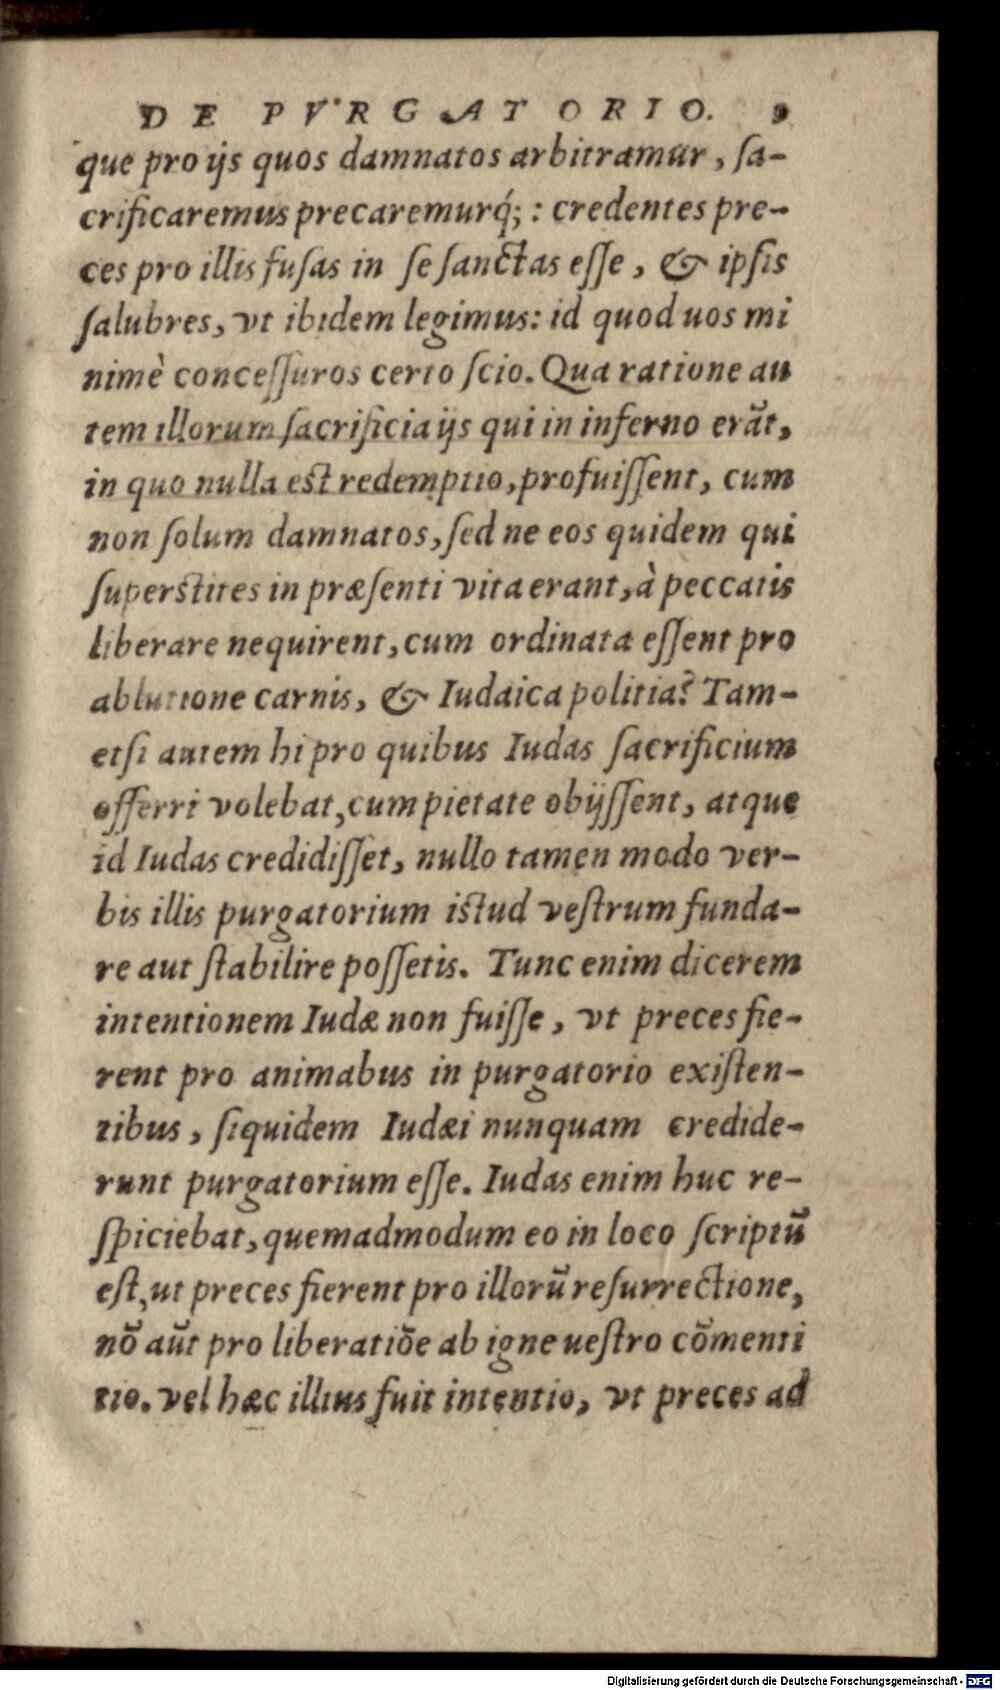 DE PVRGATORIO. 9
que pro ijs quos damnatos arbitramur, ſa-
crificaremus precaremurq́;: credentes pre-
ces pro illis fuſas in ſe ſanctas eſſe, & ipſis
ſalubres, vt ibidem legimus: id quod uos mi
nimè conceſſuros certo ſcio. Qua ratione au
tem illorum ſacrificia ijs qui in inferno erāt,
in quo nulla est redemptio, profuiſſent, cum
non ſolum damnatos, ſed ne eos quidem qui
ſuperstites in præſenti vita erant, à peccatis
liberare nequirent, cum ordinata eſſent pro
ablutione carnis, & Iudaica politia? Tam-
etſi autem hi pro quibus Iudas ſacrificium
offerri volebat, cum pietate obijſſent, atque
id Iudas credidiſſet, nullo tamen modo ver-
bis illis purgatorium istud veſtrum funda-
re aut ſtabilire poſſetis. Tunc enim dicerem
intentionem Iudæ non fuiſſe, vt preces fie-
rent pro animabus in purgatorio exiſten-
tibus, ſiquidem Iudæi nunquam credide-
runt purgatorium eſſe. Iudas enim huc re-
ſpiciebat, quemadmodum eo in loco ſcriptū
eſt, ut preces fierent pro illorū reſurrectione,
nō aūt pro liberatiōe ab igne ueſtro cōmenti
tio. vel hæc illius fuit intentio, vt preces ad
Digitalisierung gefördert durch die Deutsche Forschungsgemeinschaft - DFG